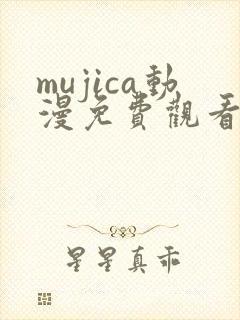 mujica動
漫免費觀看
星星真乖